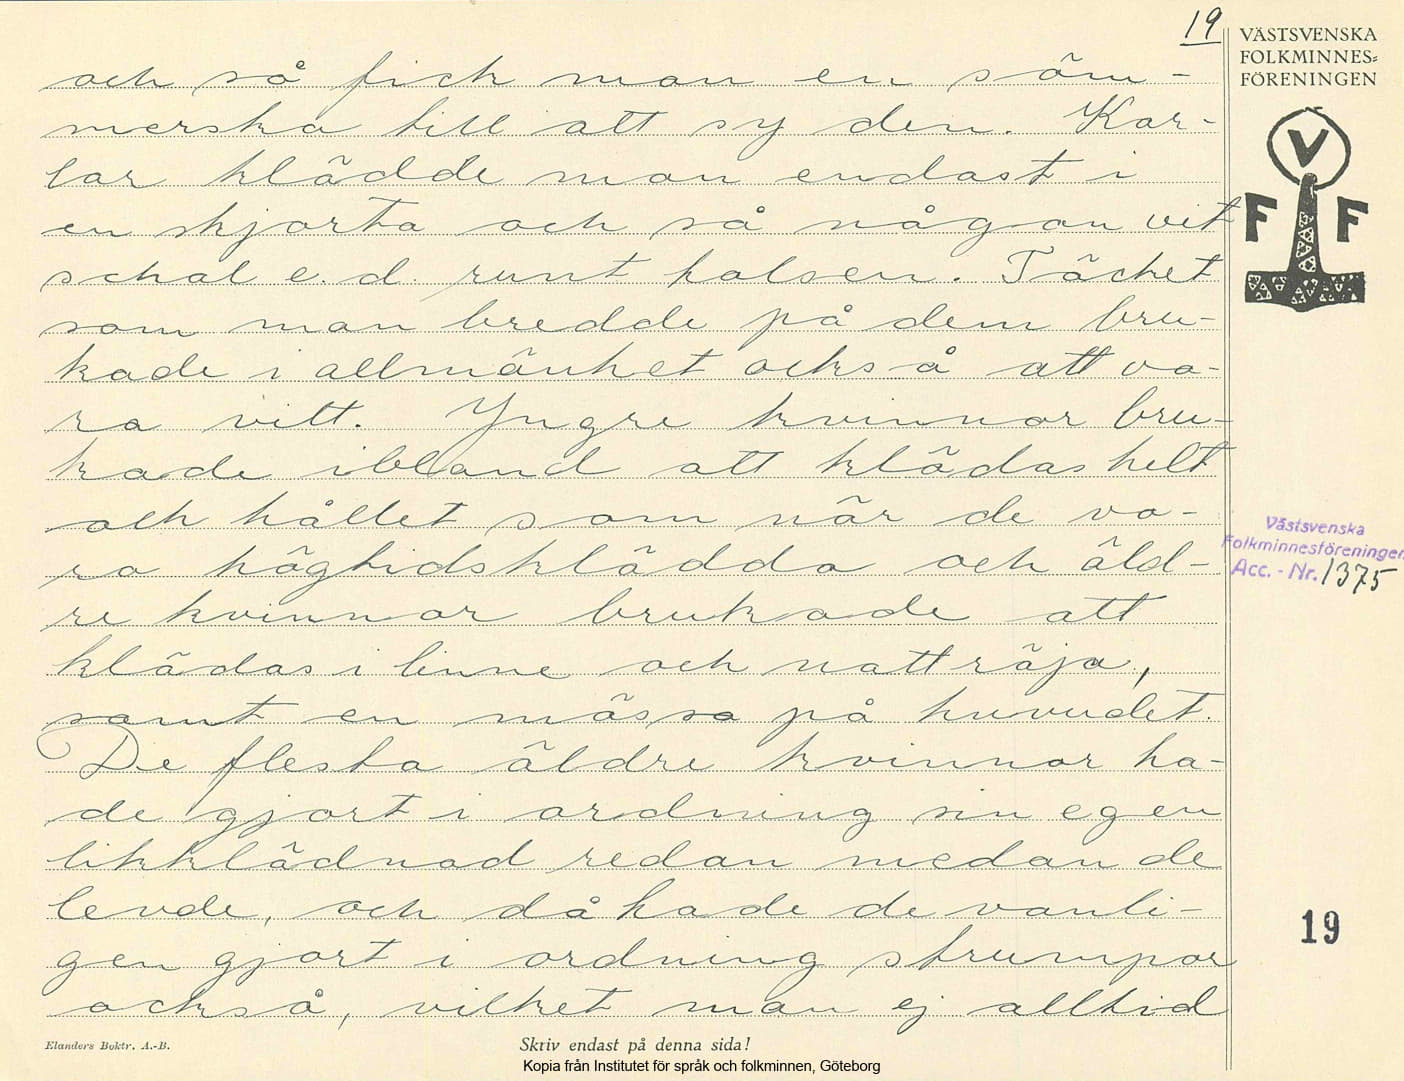 19
VÄSTSVENSKA
FOLKMINNES=
FÖRENINGEN
V
F F
och så fick man en söm-
merska till att sy den. Kar-
lar klädde man endast i
en skjorta och så någon vit
schal e.d. runt halsen. Täcket
som man bredde på dem bru-
kade i allmänhet också att va-
ra vitt. Yngre kvinnor bru-
kade ibland att klädas helt
och hållet som när de vo-
ro högtidsklädda och äld-
re kvinnor brukade att
klädas i linne och nattröja,
samt en mössa på huvudet.
De flesta äldre kvinnor ha-
de gjort i ordning sin egen
likklädnad redan medan de
levde, och då hade de vanli-
gen gjort i ordning strumpor
också, vilket man ej alltid
Västsvenska
Folkminnesföreningen
Acc. - Nr. 1375
19
Elanders Boktr. A.-B.
Skriv endast på denna sida!
Kopia från Institutet för språk och folkminnen, Göteborg